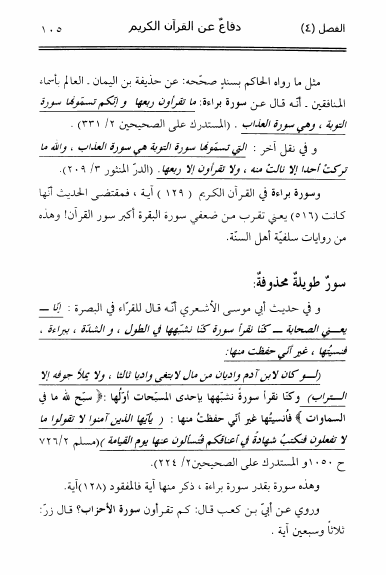 الفصل (٤) دفاعٌ عن القرآن الكريم ١٠٥
مثل ما رواه الحاكم بسندٍ صحّحه: عن حذيفة بن اليمان ـ العالم بأسماء
المنافقين ـ أنّه قال عن سورة براءة: ما تقرأون ربعها و إنكم تسمّونها سورة
التوبة ، وهي سورة العذاب . (المستدرك على الصحيحين ٢/ ٣٣١) .
و في نقل آخر : التي تسمّونها سورة التوبة هي سورة العذاب ، والله ما
تركتْ أحدا إلا نالتْ منه ، ولا تقرأون إلا ربعها. (الدرّ المنثور ٣/ ٢٠٩).
وسورة براءة في القرآن الكريم (١٢٩) آية ، فمقتضى الحديث أنّها
كانت (٥١٦) يعني تقرب من ضعفي سورة البقرة أكبر سور القرآن! وهذه
من روايات سلفيّة أهل السنّة.
سورٌ طويلةٌ محذوفةٌ:
و في حديث أبي موسى الأشعري أنّه قال للقرّاء في البصرة : إنّا ـ
يعني الصحابة ـ كنّا نقرأ سورة كنّا نشبّهها في الطول ، و الشدّة ، ببراءة ،
فنسيتُها ، غير أنّي حفظت منها:
(لو كان لابن آدم واديان من مال لابتغى واديا ثالثا ، ولا يملأ جوفه إلا
التراب) وكنّا نقرأ سورةً نشبّهها بإحدى المسبّحات أوّلُها :﴿ سبّح لله ما في
السماوات ﴾ فأنسيتُها غير أنّي حفظتُ منها : ( يأيّها الذين آمنوا لا تقولوا ما
لا تفعلون فتُكتبُ شهادةً في أعناقكم فتُسألون عنها يوم القيامة )(مسلم ٧٢٦/٢
ح ١٠٥٠و المستدرك على الصحيحين٢/ ٢٢٤).
وهذه سورة بقدر سورة براءة ، ذكر منها آية فالمفقود (١٢٨)آية.
وروي عن أبيّ بن كعب قال: كم تقرأون سورة الأحزاب؟ قال زرّ:
ثلاثاً وسبعين آية .